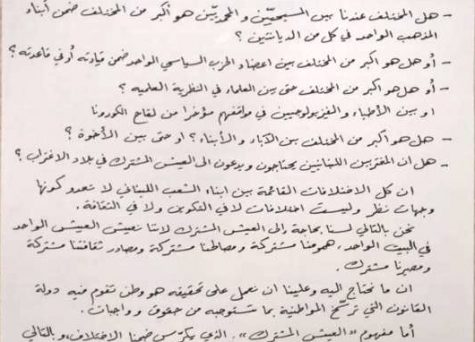 - هل المختلف عندنا بين المسيحيّين والمحمديّين هو أكبر من المختلف ضمن أبناء
المذهب الواحد في كل من الديانتين ؟
- أو هل هو أكبر من المختلف بين اعضاء الحزب السياسي الواحد ضمن قيادته أو في قاعدته ؟
- أو هل هو أكبر من المختلف حتى بين العلماء في النظرية العلمية ؟
او بين الأطباء والفيزيولوجيين في مواقفهم مؤخرا من لقاح الكورونا
- هل هو أكبر من المختلف بين الآباء والأبناء ؟ او حتى بين الأخوة ؟
- هل ان المغتربين اللبنانيين يحتاجون ويدعون الى العيش المشترك في بلاد الاغتراب ؟
ان كل الاختلافات القائمة بين ابناء الشعب اللبناني لا تعدو كونها
وجهات نظر وليست اختلافات لا في التكوين ولا في الثقافة .
نحن بالتالي لسنا بحاجة الى العيش المشترك لاننا نعيش العيش الواحد
في البيت الواحد ، همومنا مشتركة ومصالحنا مشتركة ومصادر ثقافتنا مشتركة
ومصيرنا مشترك .
ان ما نحتاج اليه وعلينا ان نعمل على تحقيقه هو وطن تقوم فيه دولة
القانون التي ترسّخ المواطنية بما تستوجبه من حقوق وواجبات .
أما مفهوم "العيش المشترك" . الذي يكرّس ضمنا الاختلاف ، وبالتالي